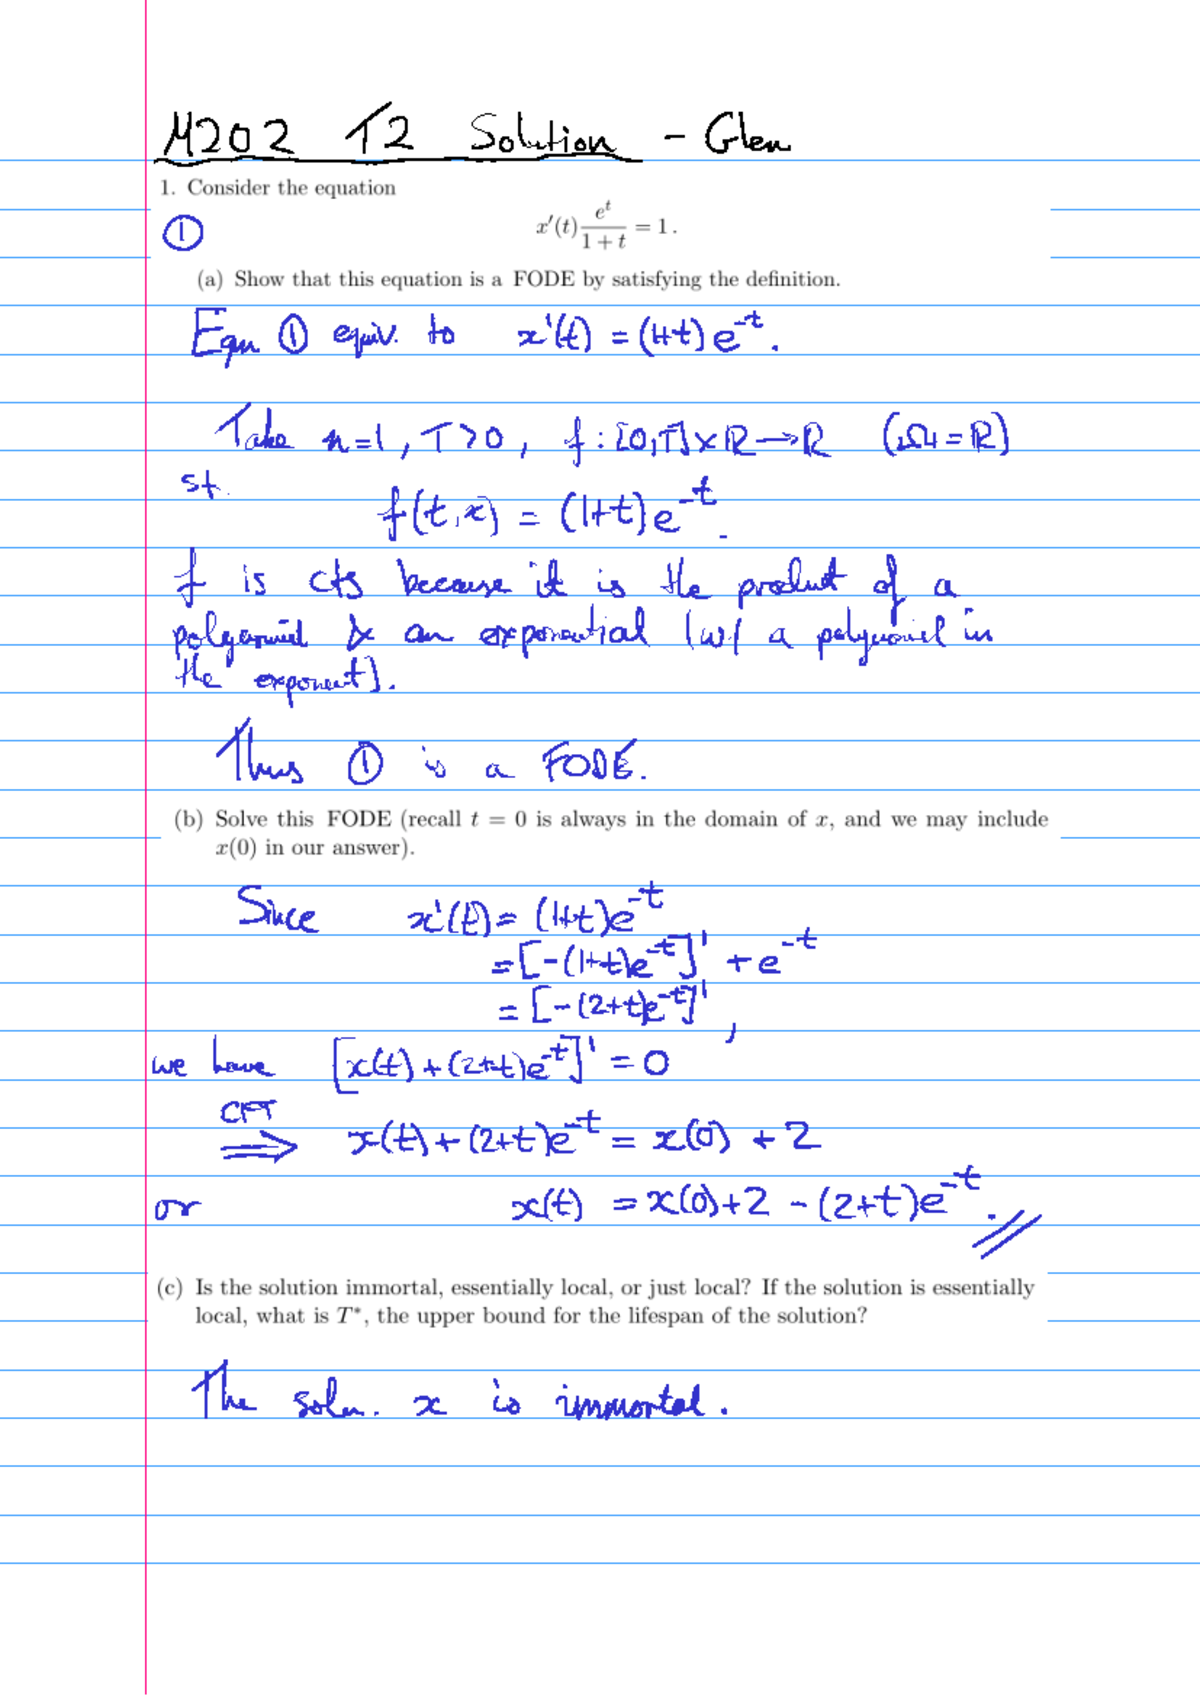 M202 T2 Solution - Glen
1. Consider the equation
① x′(t) e^t/(1+t) = 1.
(a) Show that this equation is a FODE by satisfying the definition.
Eqn ① equiv. to x'(t) = (1+t)e^-t.
Take n=1, T>0, f:[0,T]×ℝ→ℝ (Ω=ℝ)
st. f(t,x) = (1+t)e^-t.
f is cts because it is the product of a
polynomial & an exponential (w/ a polynomial in
the exponent).
Thus ① is a FODE.
(b) Solve this FODE (recall t = 0 is always in the domain of x, and we may include
x(0) in our answer).
Since x'(t) = (1+t)e^-t
= [-(1+t)e^-t]' + e^-t
= [-(2+t)e^-t]',
we have [x(t)+(2+t)e^-t]' = 0
CFT
⟹ x(t)+(2+t)e^-t = x(0) + 2
or x(t) = x(0)+2 - (2+t)e^-t. //
(c) Is the solution immortal, essentially local, or just local? If the solution is essentially
local, what is T*, the upper bound for the lifespan of the solution?
The soln. x is immortal.